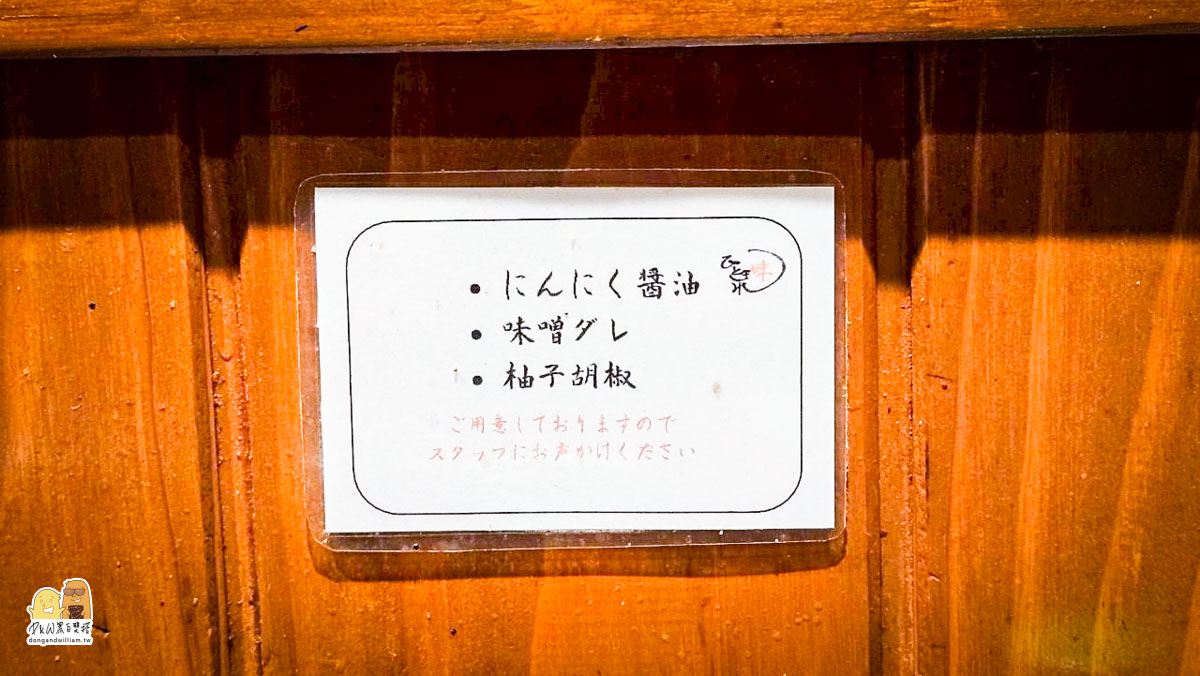 ・にんにく醤油
・味噌ダレ
・柚子胡椒
ご用意しておりますので
スタッフにお声かけください
味
dongandwilliam.tw